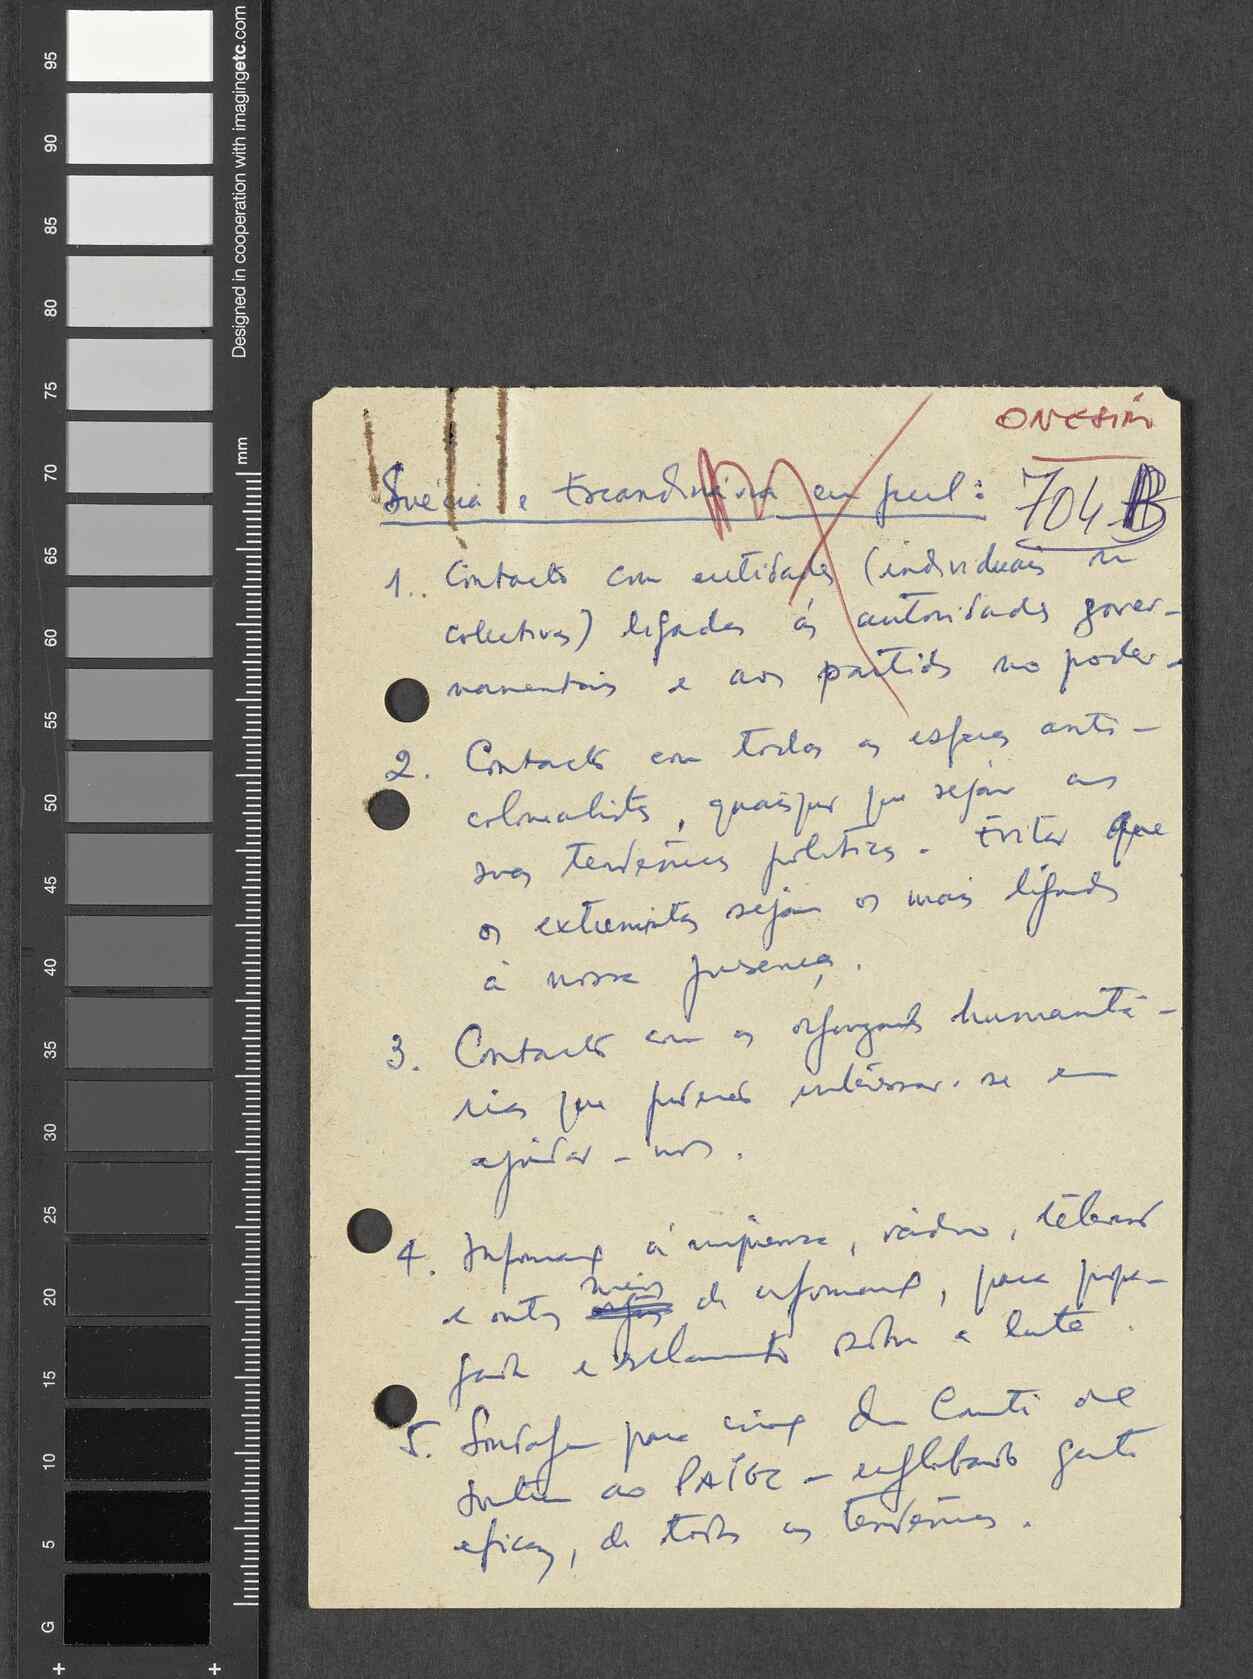 95
90
85
80
75
70
65
60
55
50
45
40
35
30
25
20
15
10
5
G
Designed in cooperation with imagingetc.com
mm
704 B
Suécia e Escandinávia em geral:
1. Contacto com entidades (individuais ou
colectivas) ligadas às autoridades gover-
namentais e aos partidos no poder.
2. Contacto com todas as esferas anti-
colonialistas, quaisquer que sejam as
suas tendências políticas. Evitar que
os extremistas sejam os mais ligados
à nossa presença.
3. Contacto com as organizações humanitá-
rias que podem interessar-se em
ajudar-nos.
4. Informação à imprensa, rádio, televisão
e outros meios de informação, para propa-
ganda e esclarecimento sobre a luta.
5. Sondagem para criação dum Comité de
soutien ao PAIGC - englobando gente
eficaz, de todas as tendências.